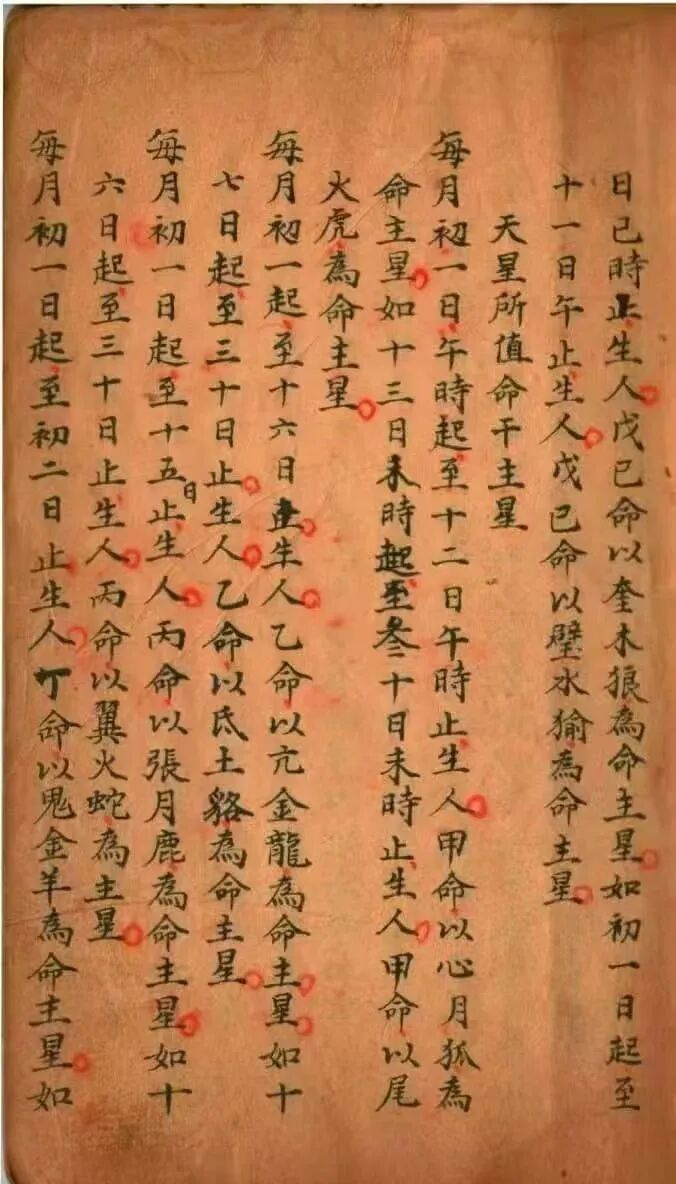 日已時止生人戊已命以奎木狼為命主星如初一日起至
十一日午止生人戊已命以壁水㺄為命主星
天星所值命干主星
每月初一日午時起至十二日午時止生人甲命以心月狐為
命主星如十三日未時起至叁十日未時止生人甲命以尾
火虎為命主星
每月初一起至十六日生人乙命以亢金龍為命主星如十
七日起至三十日止生人乙命以氐土貉為命主星
每月初一日起至十五日止生人丙命以張月鹿為命主星如十
六日起至三十日止生人丙命以翼火蛇為主星
每月初一日起至初二日止生人丁命以鬼金羊為命主星如